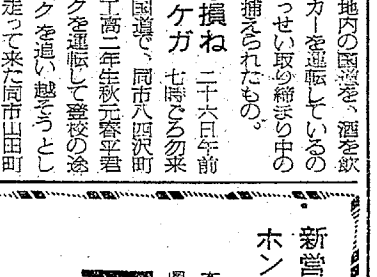 地内の国道を、酒を飲
カーを運転しているの
っせい取り締まり中の
捕えられたもの。
損ね
ケガ
二十六日午前
七時ごろ勿来
国道で、同市八四沢町
工高二年生秋元春平君
クを運転して登校の途
クを追い越そうとし
走って来た同市山田町
新営
ホン